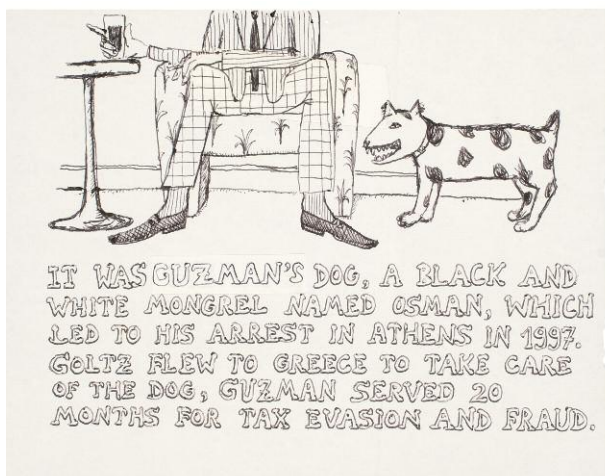 IT WAS GUZMAN'S DOG, A BLACK AND
WHITE MONGREL NAMED OSMAN, WHICH
LED TO HIS ARREST IN ATHENS IN 1997.
GOLTZ FLEW TO GREECE TO TAKE CARE
OF THE DOG, GUZMAN SERVED 20
MONTHS FOR TAX EVASION AND FRAUD.